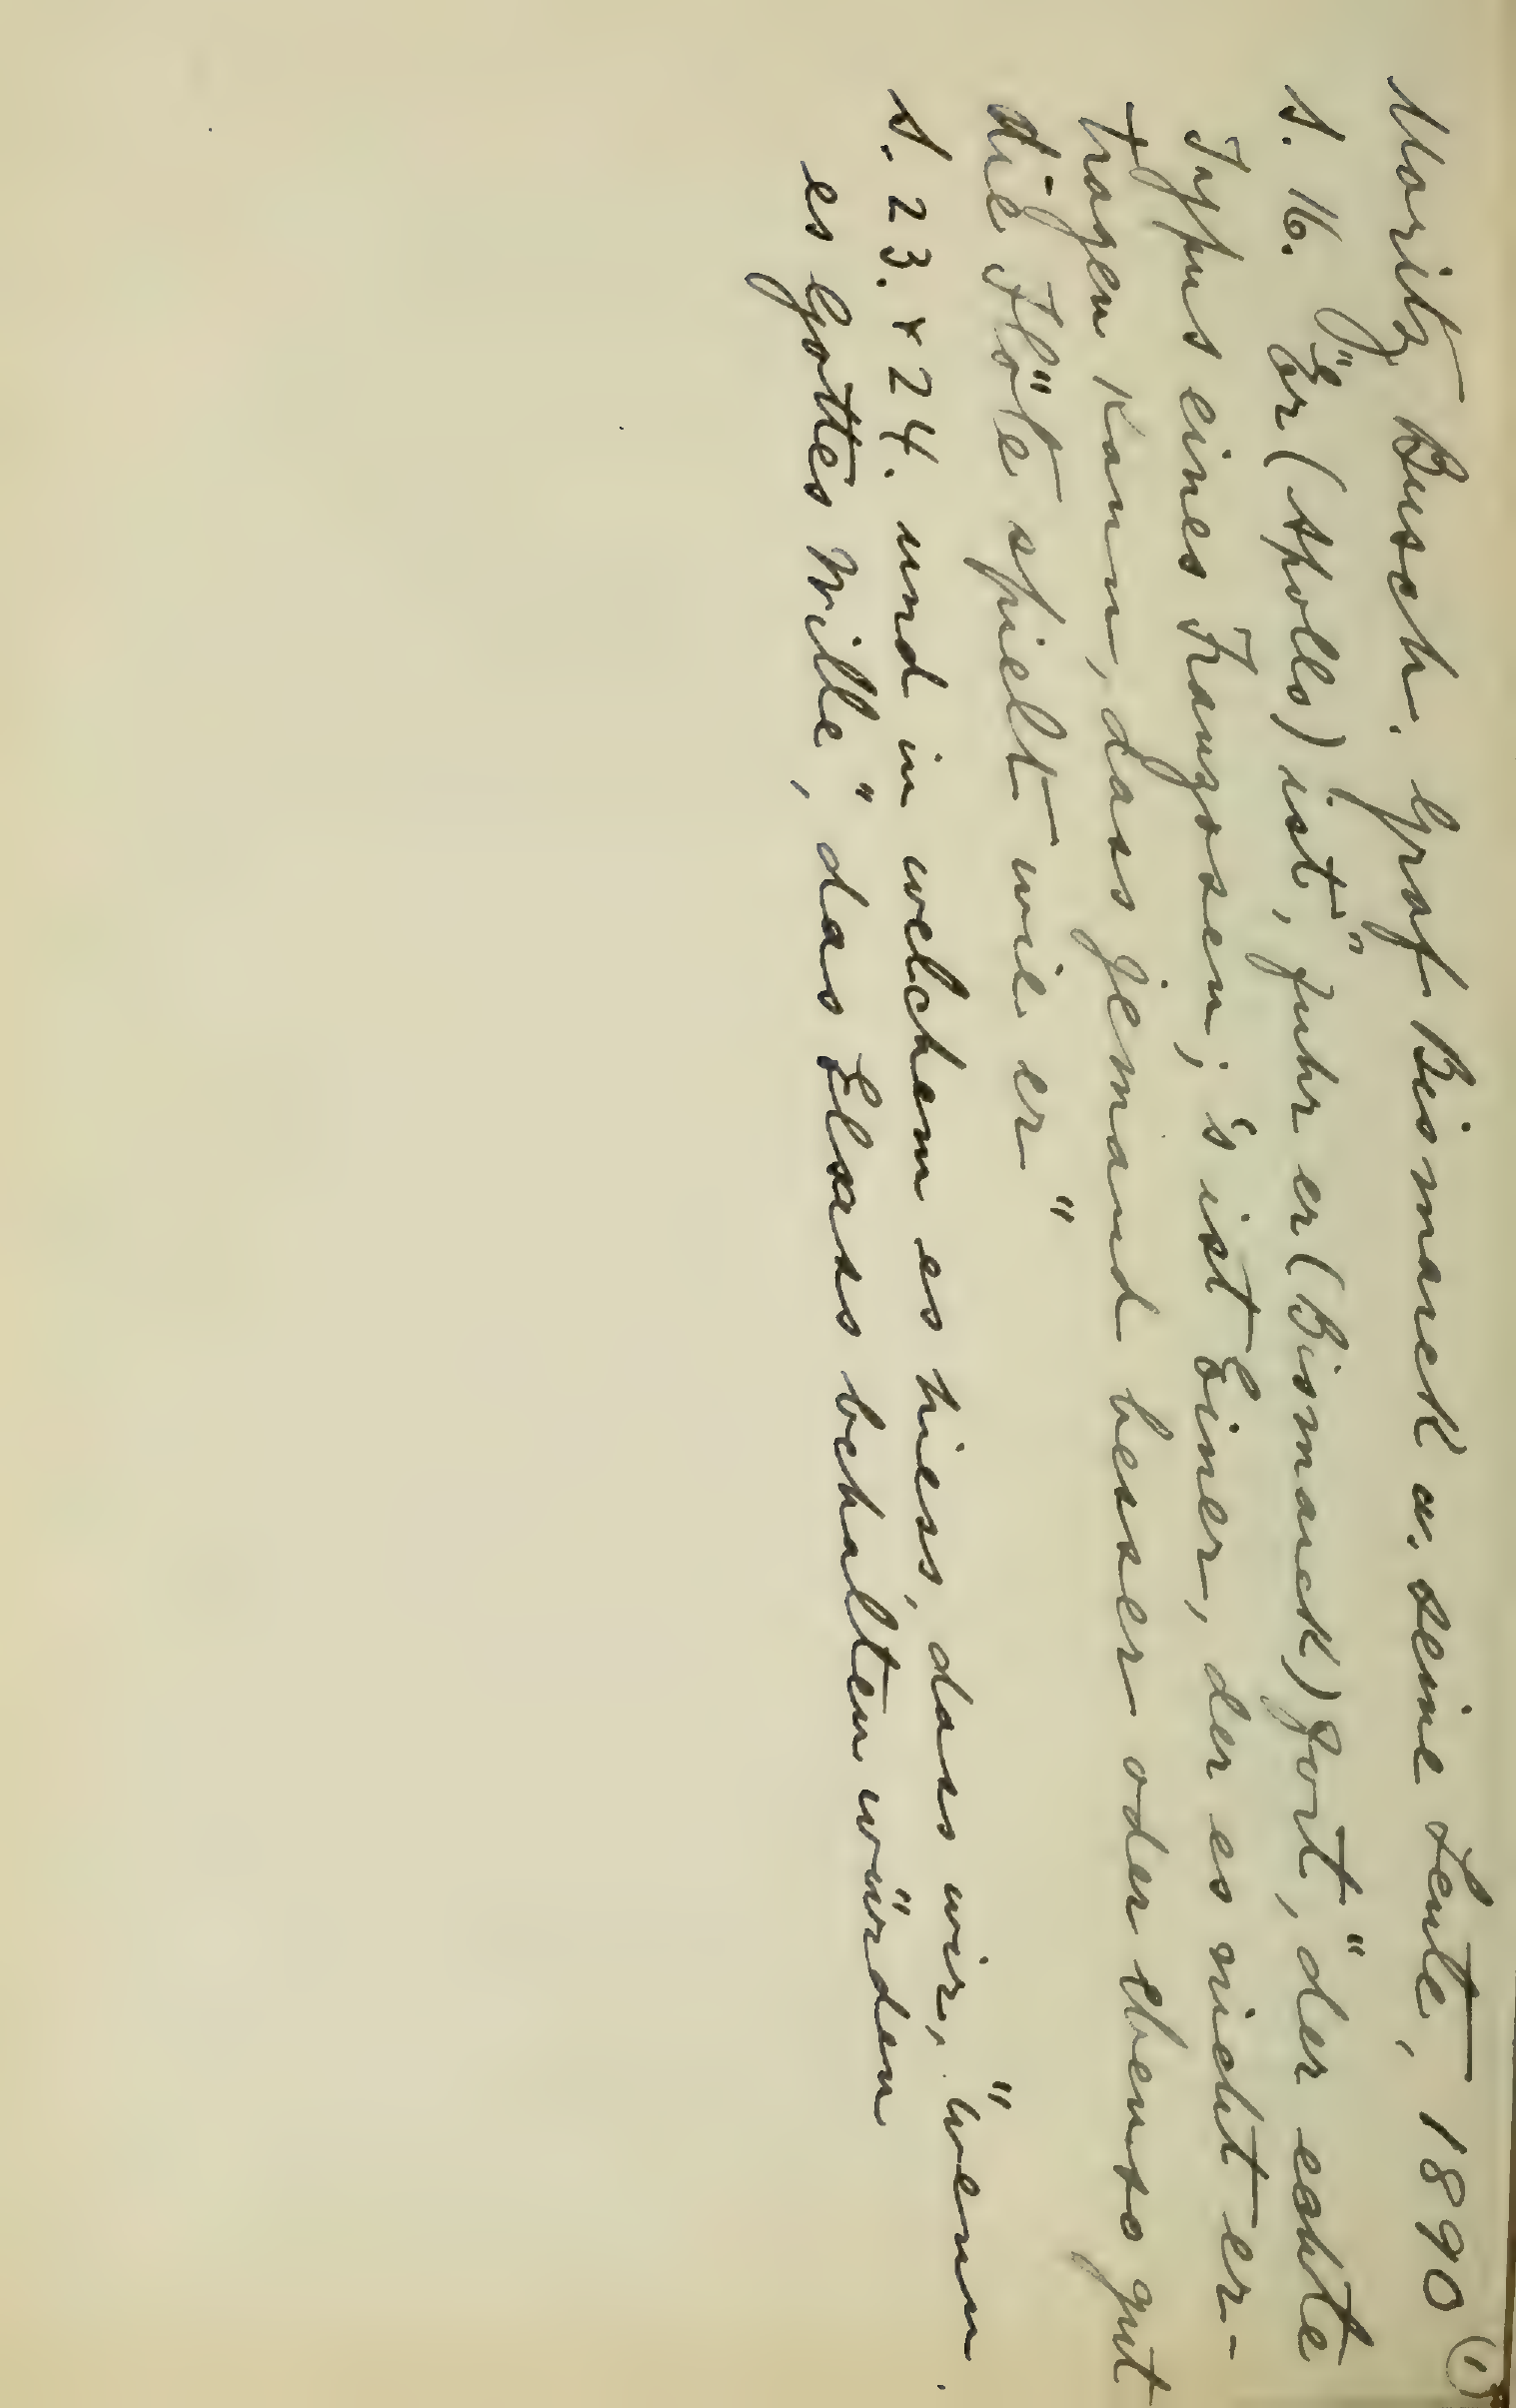 Moritz Busch. Graf Bismarck u. seine Leute, 1890 (1)
S. 16. "Er (Apollo) ist," fuhr er (Bismarck) fort, "der echte
Typus eines Franzosen; 's ist Einer, der es nicht er-
tragen kann, dass jemand besser oder ebenso gut
die Flöte spielt wie er"
S. 23. + 24. und in welchem es hiess, dass wir, "wenn
es Gottes Wille", das Elsass behalten würden